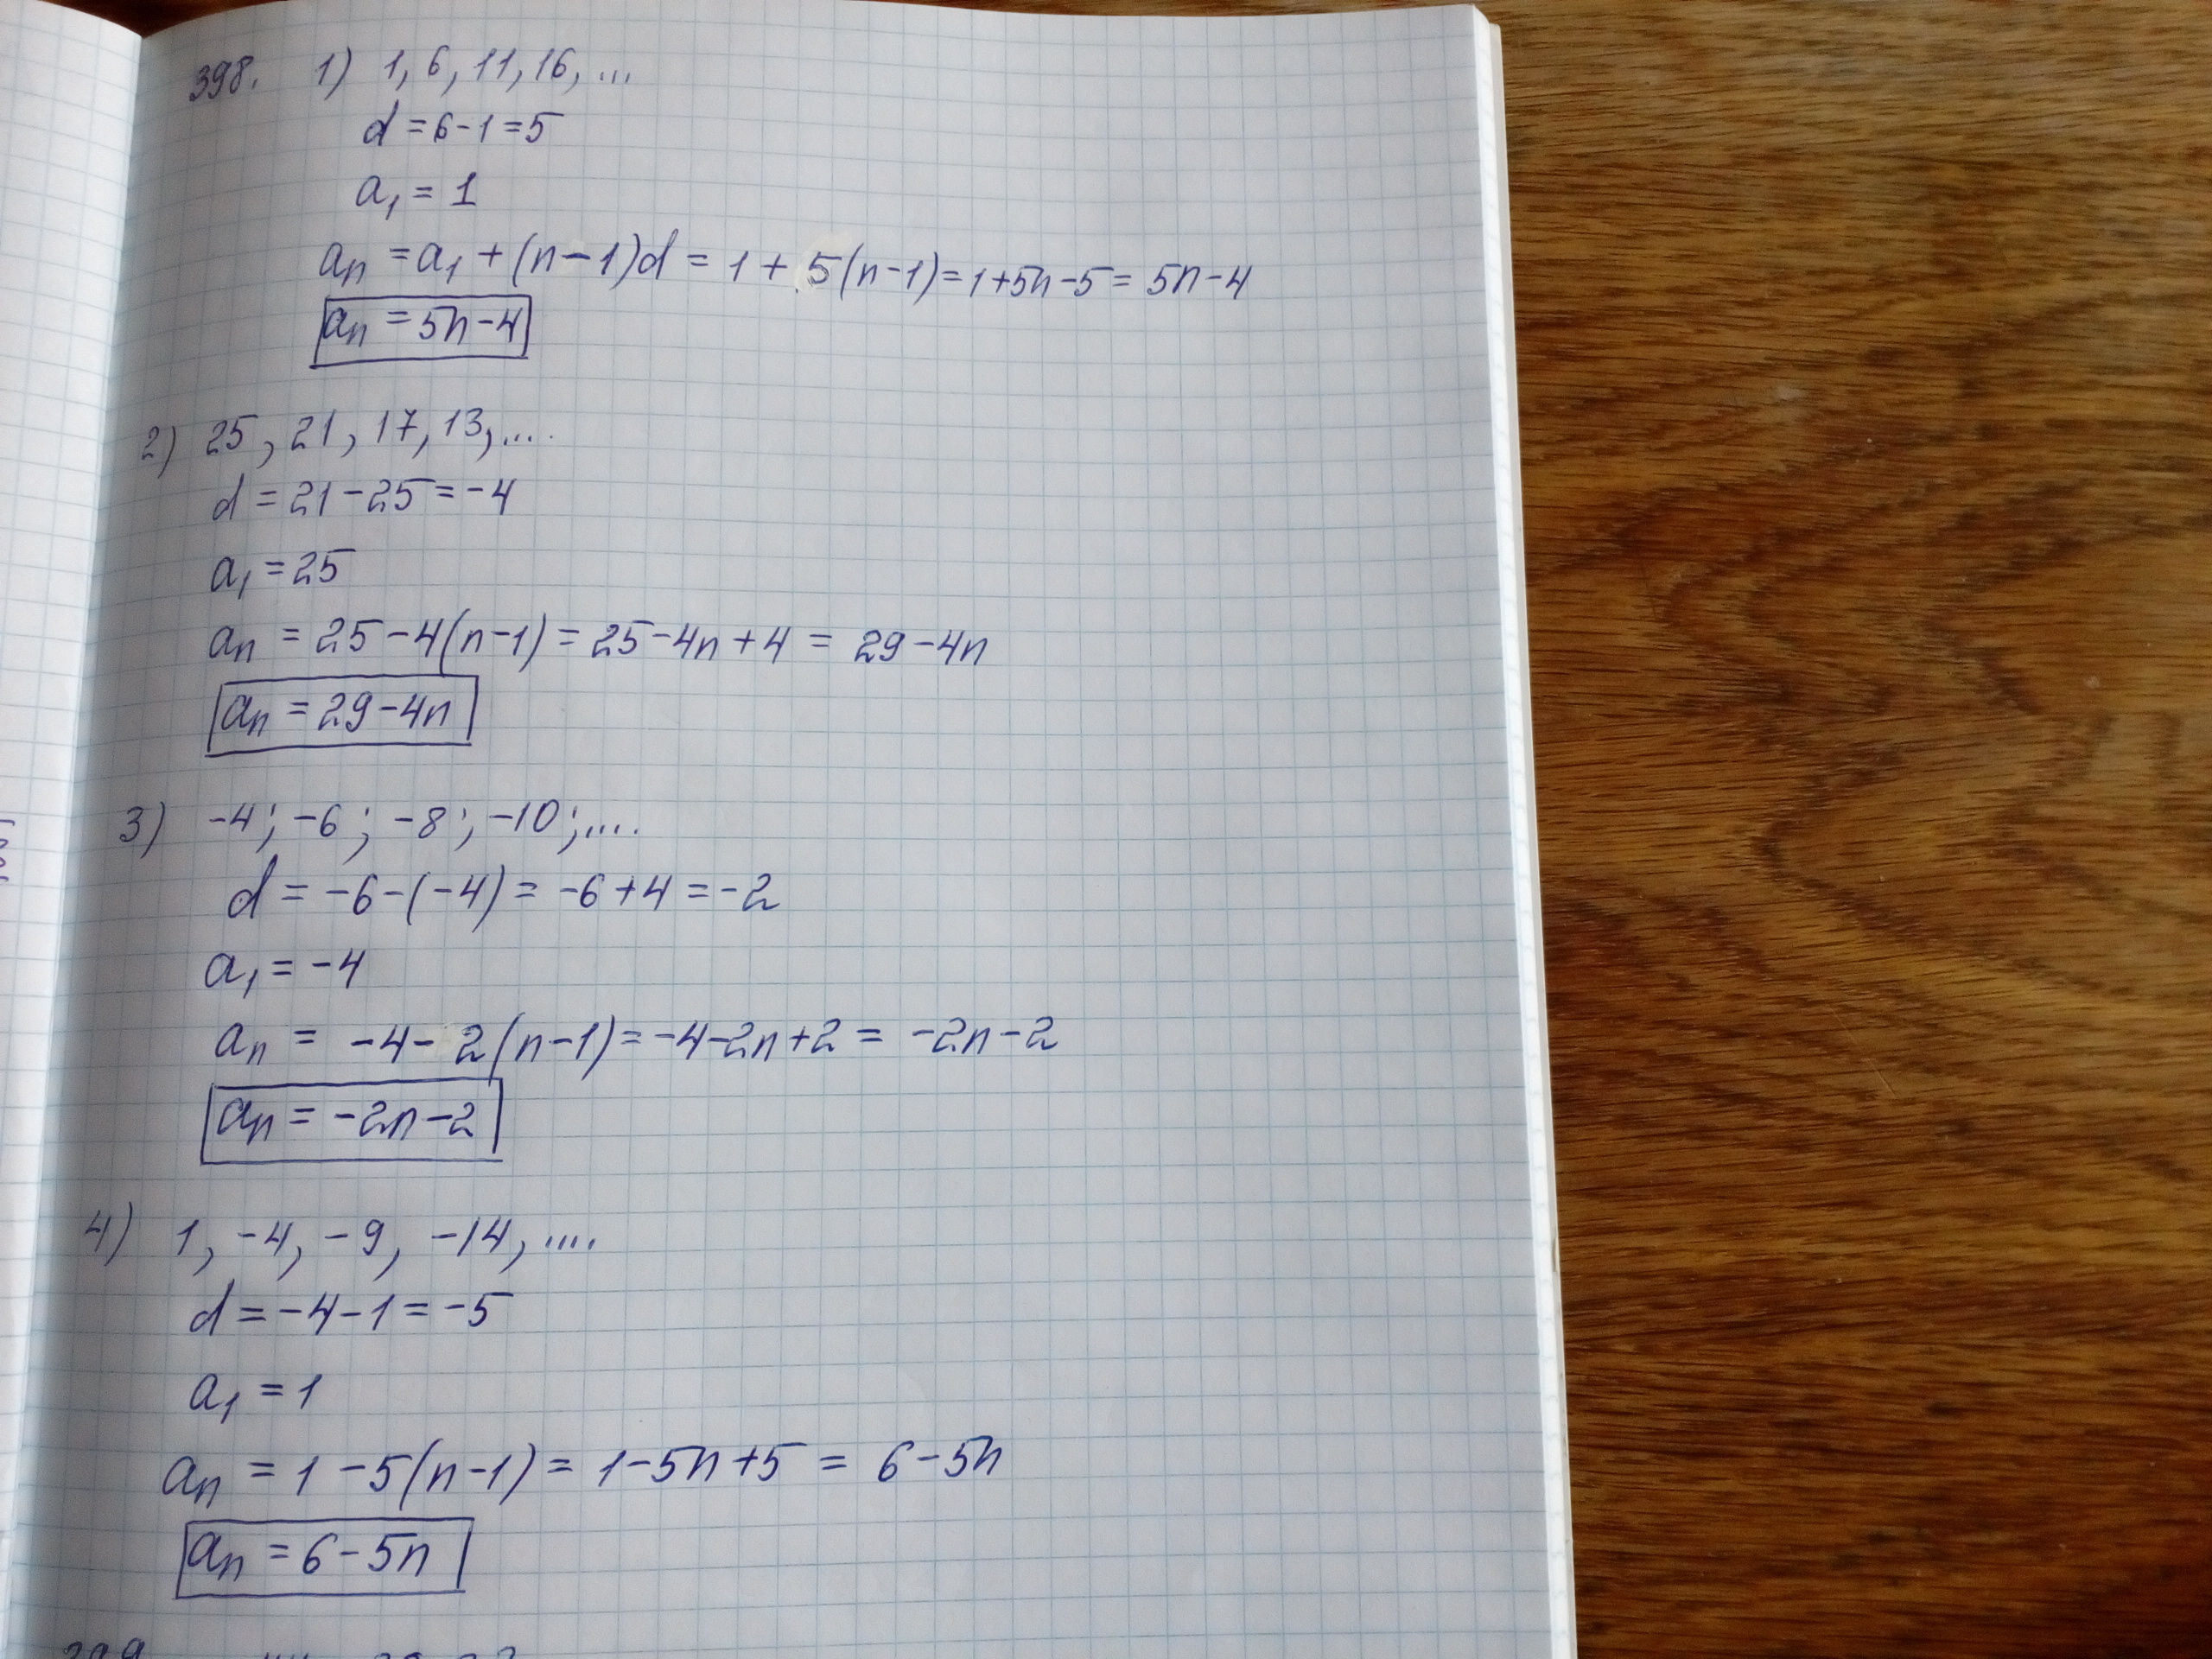 398. 1) 1, 6, 11, 16, ...
d = 6 - 1 = 5
a₁ = 1
aₙ = a₁ + (n - 1)d = 1 + 5(n - 1) = 1 + 5n - 5 = 5n - 4
aₙ = 5n - 4
2) 25, 21, 17, 13, ....
d = 21 - 25 = -4
a₁ = 25
aₙ = 25 - 4(n - 1) = 25 - 4n + 4 = 29 - 4n
aₙ = 29 - 4n
3) -4; -6; -8; -10; ....
d = -6 - (-4) = -6 + 4 = -2
a₁ = -4
aₙ = -4 - 2(n - 1) = -4 - 2n + 2 = -2n - 2
aₙ = -2n - 2
4) 1, -4, -9, -14, ....
d = -4 - 1 = -5
a₁ = 1
aₙ = 1 - 5(n - 1) = 1 - 5n + 5 = 6 - 5n
aₙ = 6 - 5n